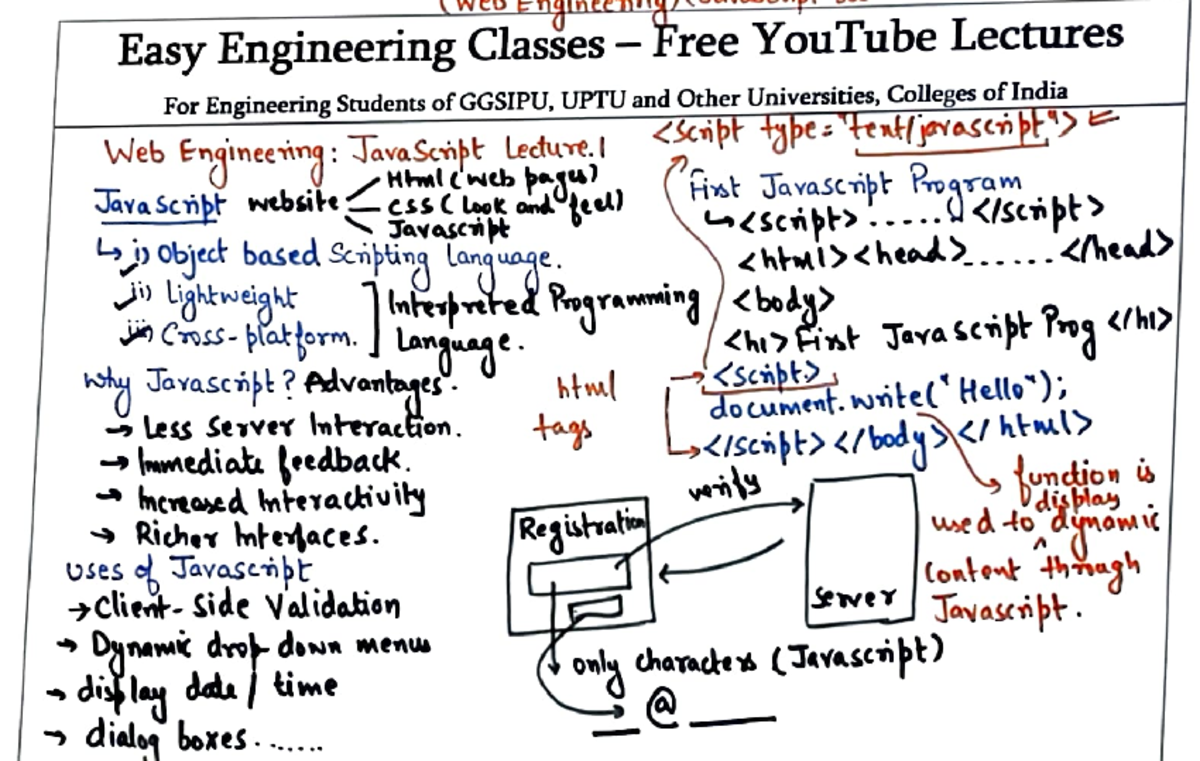 (Web Engineering)
Easy Engineering Classes – Free YouTube Lectures
For Engineering Students of GGSIPU, UPTU and Other Universities, Colleges of India
Web Engineering: JavaScript Lecture.1
JavaScript website
Html (web pages)
CSS (Look and feel)
Javascript
↳ i) Object based Scripting Language.
ii) Lightweight
iii) Cross-platform.
Interpreted Programming
Language.
Why Javascript? Advantages.
→ Less Server Interaction.
→ Immediate feedback.
→ Increased Interactivity
→ Richer Interfaces.
uses of Javascript
→ Client-Side Validation
→ Dynamic drop-down menus
→ display date / time
→ dialog boxes.......
<script type="text/javascript">
First Javascript Program
↳ <script> ...... </script>
<html><head>.......</head>
<body>
<h1>First Javascript Prog </h1>
<script>
document.write("Hello");
</script></body></html>
html
tags
function is
used to display dynamic
content through
Javascript.
Registration
verify
Server
only characters (Javascript)
__ @ ____